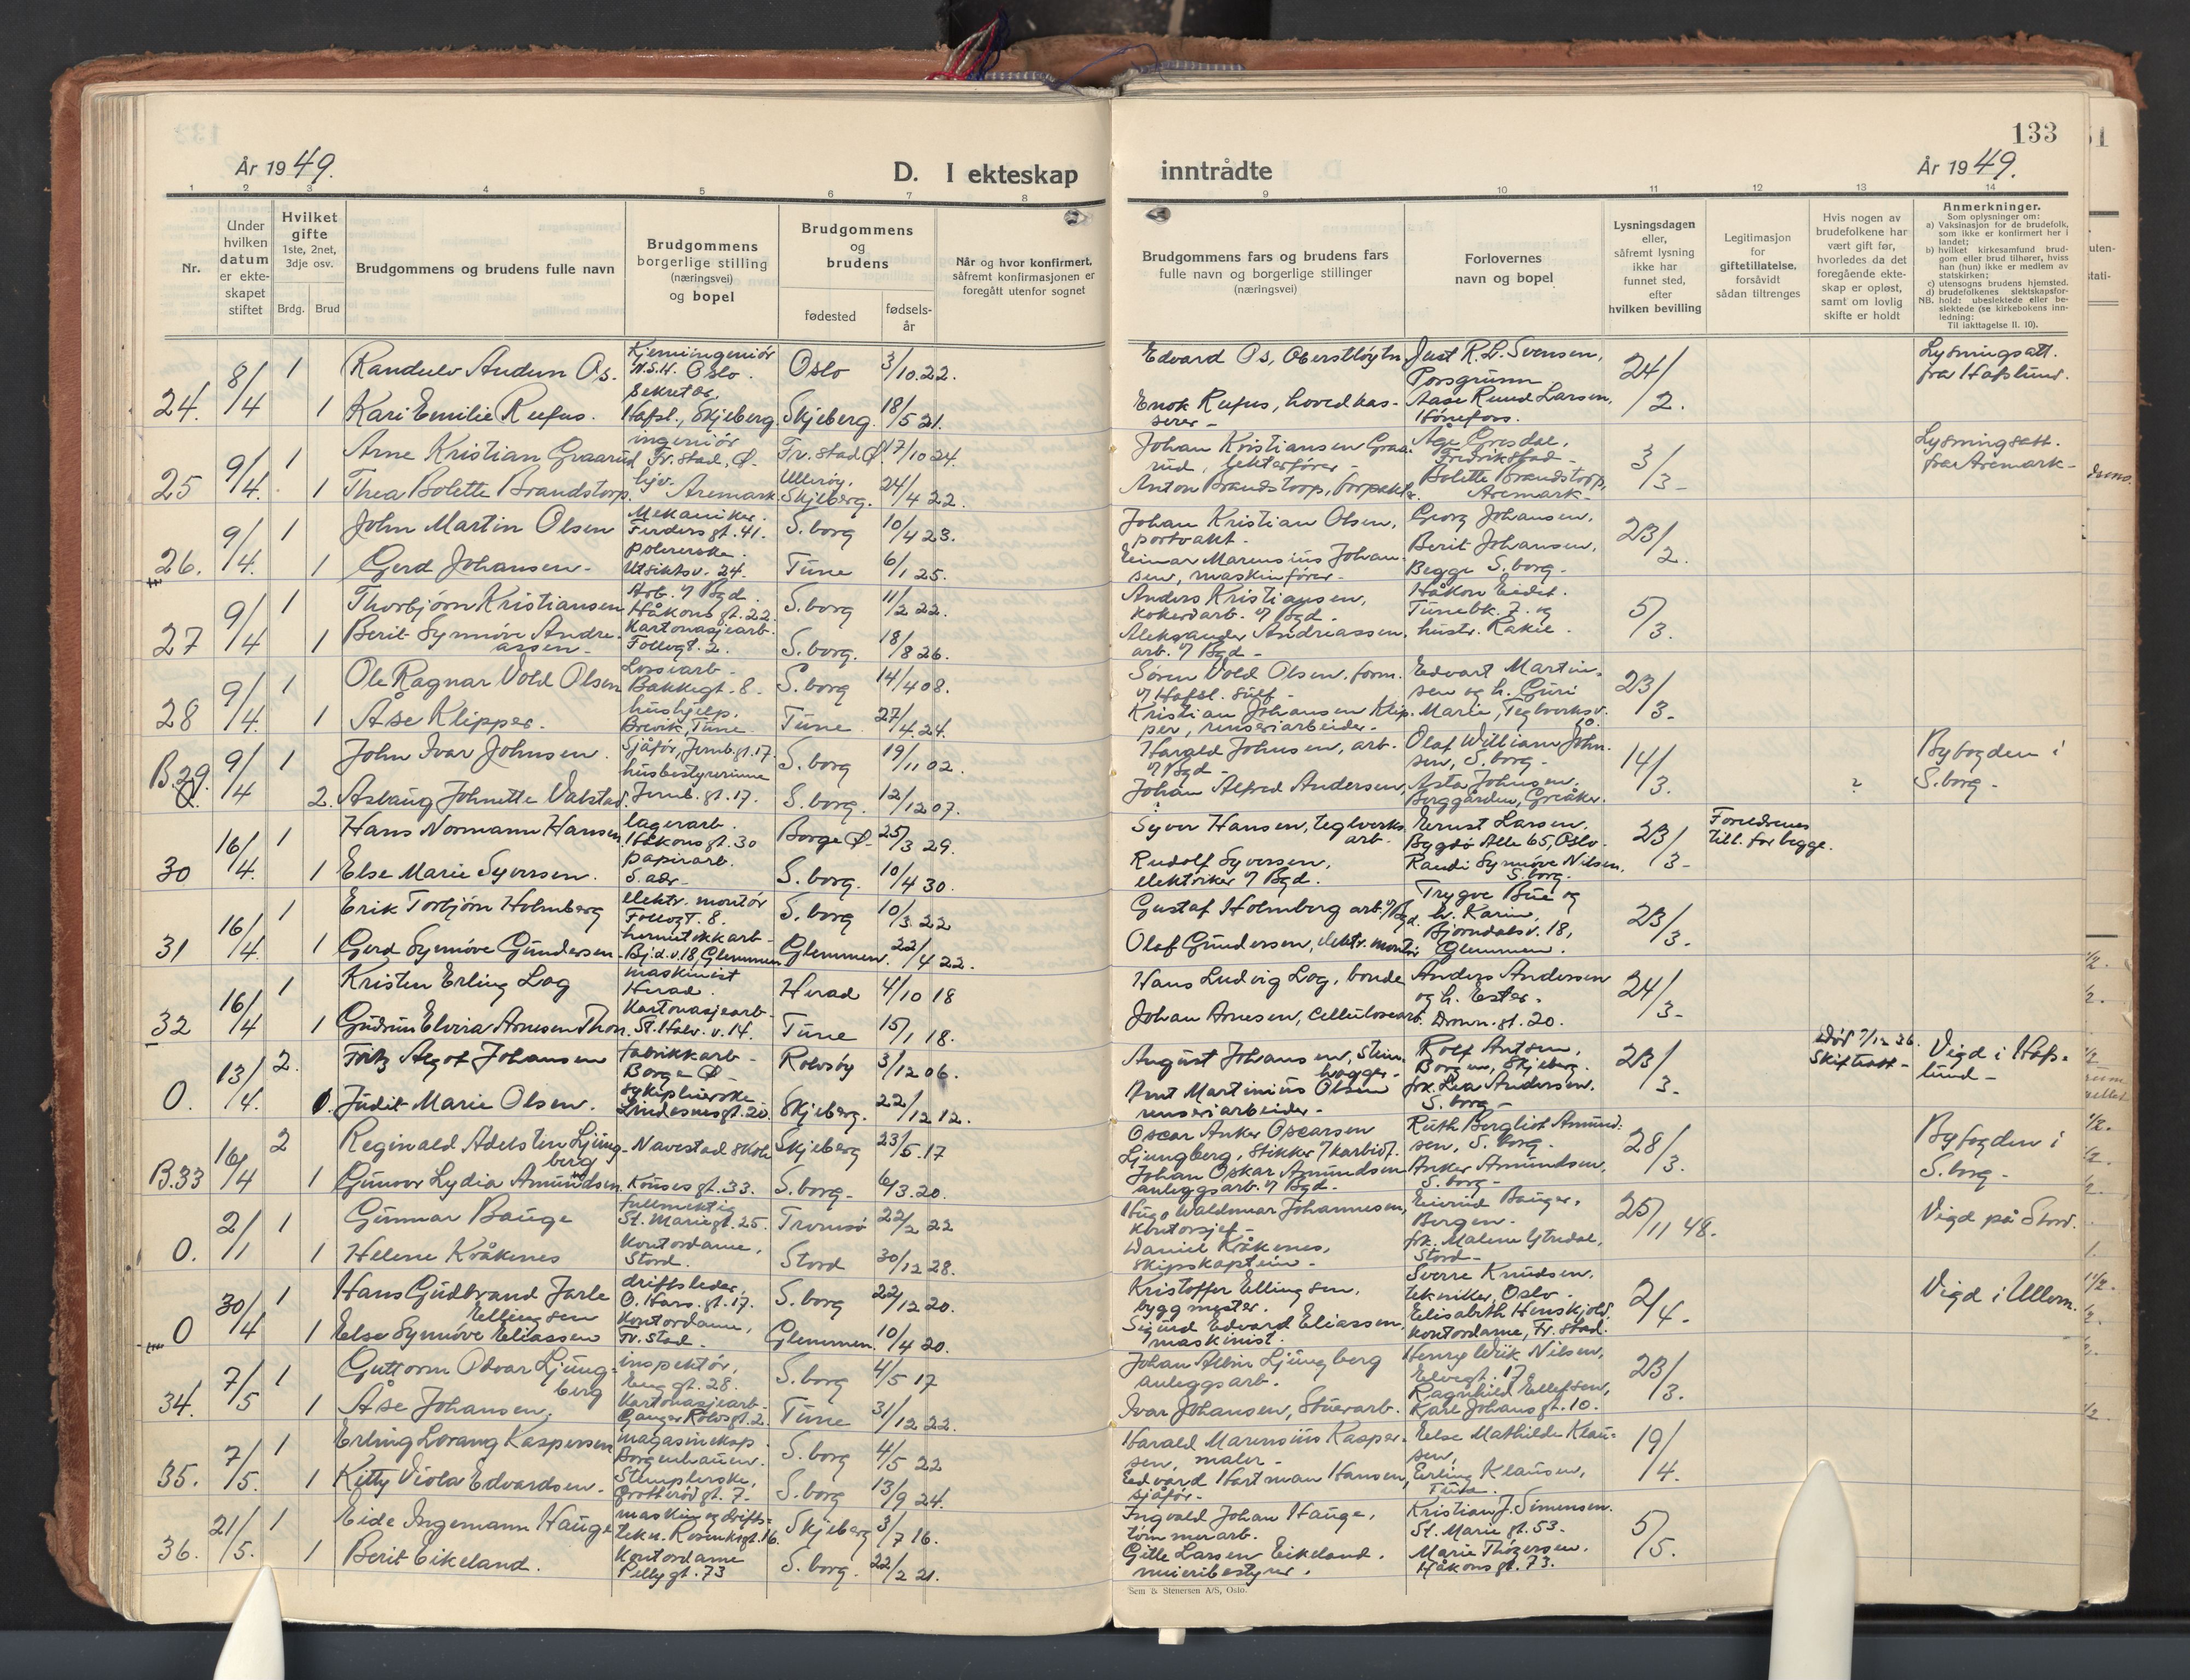 År 1949.
D. I ekteskap
1 2 3 4 5 6 7 8
Nr.
Under hvilken datum er ekteskapet stiftet
Hvilket gifte 1ste, 2net, 3dje osv.
Brdg. Brud
Brudgommens og brudens fulle navn
Brudgommens borgerlige stilling (næringsvei) og bopel
Brudgommens og brudens
fødested
fødselsår
Når og hvor konfirmert, såfremt konfirmasjonen er foregått utenfor sognet
24. 8/4 1 Randulv Audun Os. Kjemiingeniør Oslo. Oslo 3/10.22.
1 Kari Emilie Rufus. Sekretær, Hafsl., Skjeberg. Skjeberg. 18/5 21.
25 9/4. 1 Arne Kristian Graarud ingeniør Fr.stad, Ø. Fr.stad Ø. 17/10 24.
1 Thea Bolette Brandstorp. hjv. Aremark. Ullerøy, Skjeberg. 24/4 22.
26. 9/4. 1 John Martin Olsen Mekaniker. Ferdersgt. 41. S.borg 10/4 23.
1 Gerd Johansen - polererske. Utsiktsv. 24. Tune 6/1 25.
27 9/4 1 Thorbjørn Kristiansen Arb. v/ Bgd. Håkonsgt. 22. S.borg 11/2 22.
1 Berit Synnøve Andreassen - Kartonasjearb. Follogt. 2. S.borg. 18/8 26.
28 9/4. 1 Ole Ragnar Vold Olsen Lossearb - Bakkegt. 8 - S.borg 14/4 08.
1 Åse Klipper. hushjelp. Brevik, Tune Tune 27/4.24.
B.29. 9/4 1 John Ivar Johnsen. Sjåfør, Jernb.gt.17. S.borg 19/11 02.
2. Aslaug Johnette Valstad. husbestyrerinne Jernb.gt.17. S.borg. 12/12 07.
30 16/4. 1 Hans Normann Hansen lagerarb. Håkonsgt. 30 Borge Ø - 25/3 29.
1 Else Marie Syversen. papirarb. S.adr - S.borg. 10/4 30.
31 16/4. 1 Erik Torbjørn Holmberg elektr. montør Follogt. 8. S.borg 10/3 22
1 Gerd Synnøve Gundersen - hermetikkarb - Bj.d.v.18, Glemmen Glemmen. 22/4 22.
32 16/4 1 Kristen Erling Log maskinist Herad. Herad 4/10 18
1 Gudrun Elvira Arnesen Thon. Kartonasjearb - St.Halv.v.14. Tune 15/1 18.
0. 13/4. 2. Fritz Algot Johansen fabrikkarb - Borge Ø - Rolvsøy 3/12 06.
1. Judit Marie Olsen. sykepleierske Lindesnesgt. 20. Skjeberg. 22/12 12.
B.33 16/4 2 Reginald Adelsten Ljungberg - Navestad skole Skjeberg 23/5.17
1 Gunvor Lydia Amundsen. Kousesgt. 33. S.borg - 6/3.20.
0. 2/1 1 Gunnar Bauge fullmektig St. Mariegt. 25. Tromsø 22/2 22
1 Helene Kråkenes Kontordame, Stord. Stord 30/12 28.
0 30/4 1 Hans Gudbrand Jarle Ellingsen driftsleder, O. Hars.gt.17. S.borg 22/12 20.
1 Else Synnøve Eliassen Kontordame, Fr.stad. Glemmen. 10/4 20.
34. 7/5 1 Guttorm Odvar Ljungberg inspektør, Enggt. 28. S.borg 4/5 17
1 Åse Johansen. Kartonasjearb - Ganger Rolvsgt. 2. Tune 31/12 22.
35. 7/5. 1 Erling Lorang Kaspersen magasineksp. Borgenhaugen. S.borg 4/5 22
1 Kitty Viola Edvardsen. Stemplerske, Grotterødgt. 7. S.borg 13/9 24.
36. 21/5. 1 Eide Ingemann Hauge maskin og driftstekn. Rosenkrgt.16. Skjeberg 3/7 16.
1 Berit Eikeland. Kontordame Pellygt. 73 S.borg. 22/2 21.
133
inntrådte
År 1949.
9 10 11 12 13 14
Brudgommens fars og brudens fars fulle navn og borgerlige stillinger (næringsvei)
Forlovernes navn og bopel
Lysningsdagen eller, såfremt lysning ikke har funnet sted, efter hvilken bevilling
Legitimasjon for giftetillatelse, forsåvidt sådan tiltrenges
Hvis nogen av brudefolkene har vært gift før, hvorledes da det foregående ekteskap er opløst, samt om lovlig skifte er holdt
Anmerkninger.
Som oplysninger om:
a) Vaksinasjon for de brudefolk, som ikke er konfirmert her i landet;
b) hvilket kirkesamfund brudgom eller brud tilhører, hviss han (hun) ikke er medlem av statskirken;
c) utensogns brudens hjemsted.
d) brudefolkenes slektskapsforhold: ubeslektede eller beslektede (se kirkebokens innledning:
NB. Til iakttagelse II. 10).
Edvard Os, Oberstløytn. Just R.L. Svensen, Porsgrunn 24/2. Lysningsatt. fra Hafslund.
Enok Rufus, hovedkasserer - Aase Ruud Larsen, Hønefoss.
Johan Kristiansen Graarud, lekterfører - Åge Gresdal, Fredrikstad - 3/3 - Lysningsatt. fra Aremark -
Anton Brandstorp, forpakter. Bolette Brandstorp, Aremark -
Johan Kristian Olsen, portvakt. Georg Johansen, 23/2.
Einar Marensius Johansen, maskinfører - Berit Johansen, Begge S.borg.
Anders Kristiansen, kokeriarb. v/ Bgd. Håkon Eidet. Tunebk. 7. og 5/3.
Aleksander Andreassen, arb. v/ Bgd - hustr. Rakel.
Søren Vold Olsen, form. v/ Hafsl. sulf - Edvart Martinsen og h. Guri 23/3 -
Kristian Johansen Klipper, renseriarbeider - Marie, Teglverksv.
Harald Johnsen, arb. v/ Bgd - Olaf William Johnsen, S.borg - 14/3. Byfogden i S.borg -
Johan Alfred Andersen, Asta Johnsen, Berggården, Greåker. ?
Syver Hansen, teglverksarb. Ernst Larsen, Bygdø Alle 65, Oslo - 23/3 - Foreldrenes till. for begge.
Rudolf Syversen, elektriker v/ Bgd. Randi Synnøve Nilsen, S.borg.
Gustaf Holmberg arb. v/ Bgd. Trygve Bue og h. Karin, 23/3 -
Olaf Gundersen, elektr. montør Bjørndalsv. 18, Glemmen.
Hans Ludvig Log, bonde Anders Andersen og h. Ester. 24/3 -
Johan Arnesen, cellulosearb. Dronn.gt. 20.
August Johansen, stenhogger - Rolf Antsen, Borgen, Skjeberg. 23/3 - død 7/12 26. Skifteatt - Vigd i Hafslund -
Arnt Martinius Olsen renseriarbeider - frk. Lea Andersen. S.borg -
Oscar Anker Oscarsen Ljungberg, stikker v/ karbidf. Ruth Bergliot Amundsen, S.borg. 28/3. Byfogden i S.borg -
Johan Oskar Amundsen anleggsarb. v/ Bgd. Anker Amundsen, S.borg -
Hugo Waldemar Johannesen, kontorsjef - Eierind Bauger, Bergen. 25/11 48. Vigd på Stord.
Daniel Kråkenes, skipskaptein - frk. Malene Ytredal, Stord -
Kristoffer Ellingsen, byggmester. Sverre Knudsen, tekniker, Oslo - 2/4 - Vigd i Ullern.
Sigurd Edvard Eliassen, maskinist. Elisabeth Henskjold, kontordame, Fr.stad.
Johan Albin Ljungberg anleggsarb. Henry Wiik Nilsen, Elvegt. 17. 23/3.
Ivar Johansen, stuerarb. Ragnhild Ellefsen, Karl Johansgt. 10.
Harald Marensius Kaspersen, maler - Else Mathilde Klausen, 19/4.
Edvard Hartman Hansen, sjåfør - Erling Klausen, Tune.
Ingvald Johan Hauge, tømmerarb. Kristian J. Simensen. St. Mariegt. 53 - 5/5.
Gitle Larsen Eikeland. meieribestyrer. Marie Thøgersen. Håkonsgt. 73.
Sem & Stenersen A/S, Oslo.